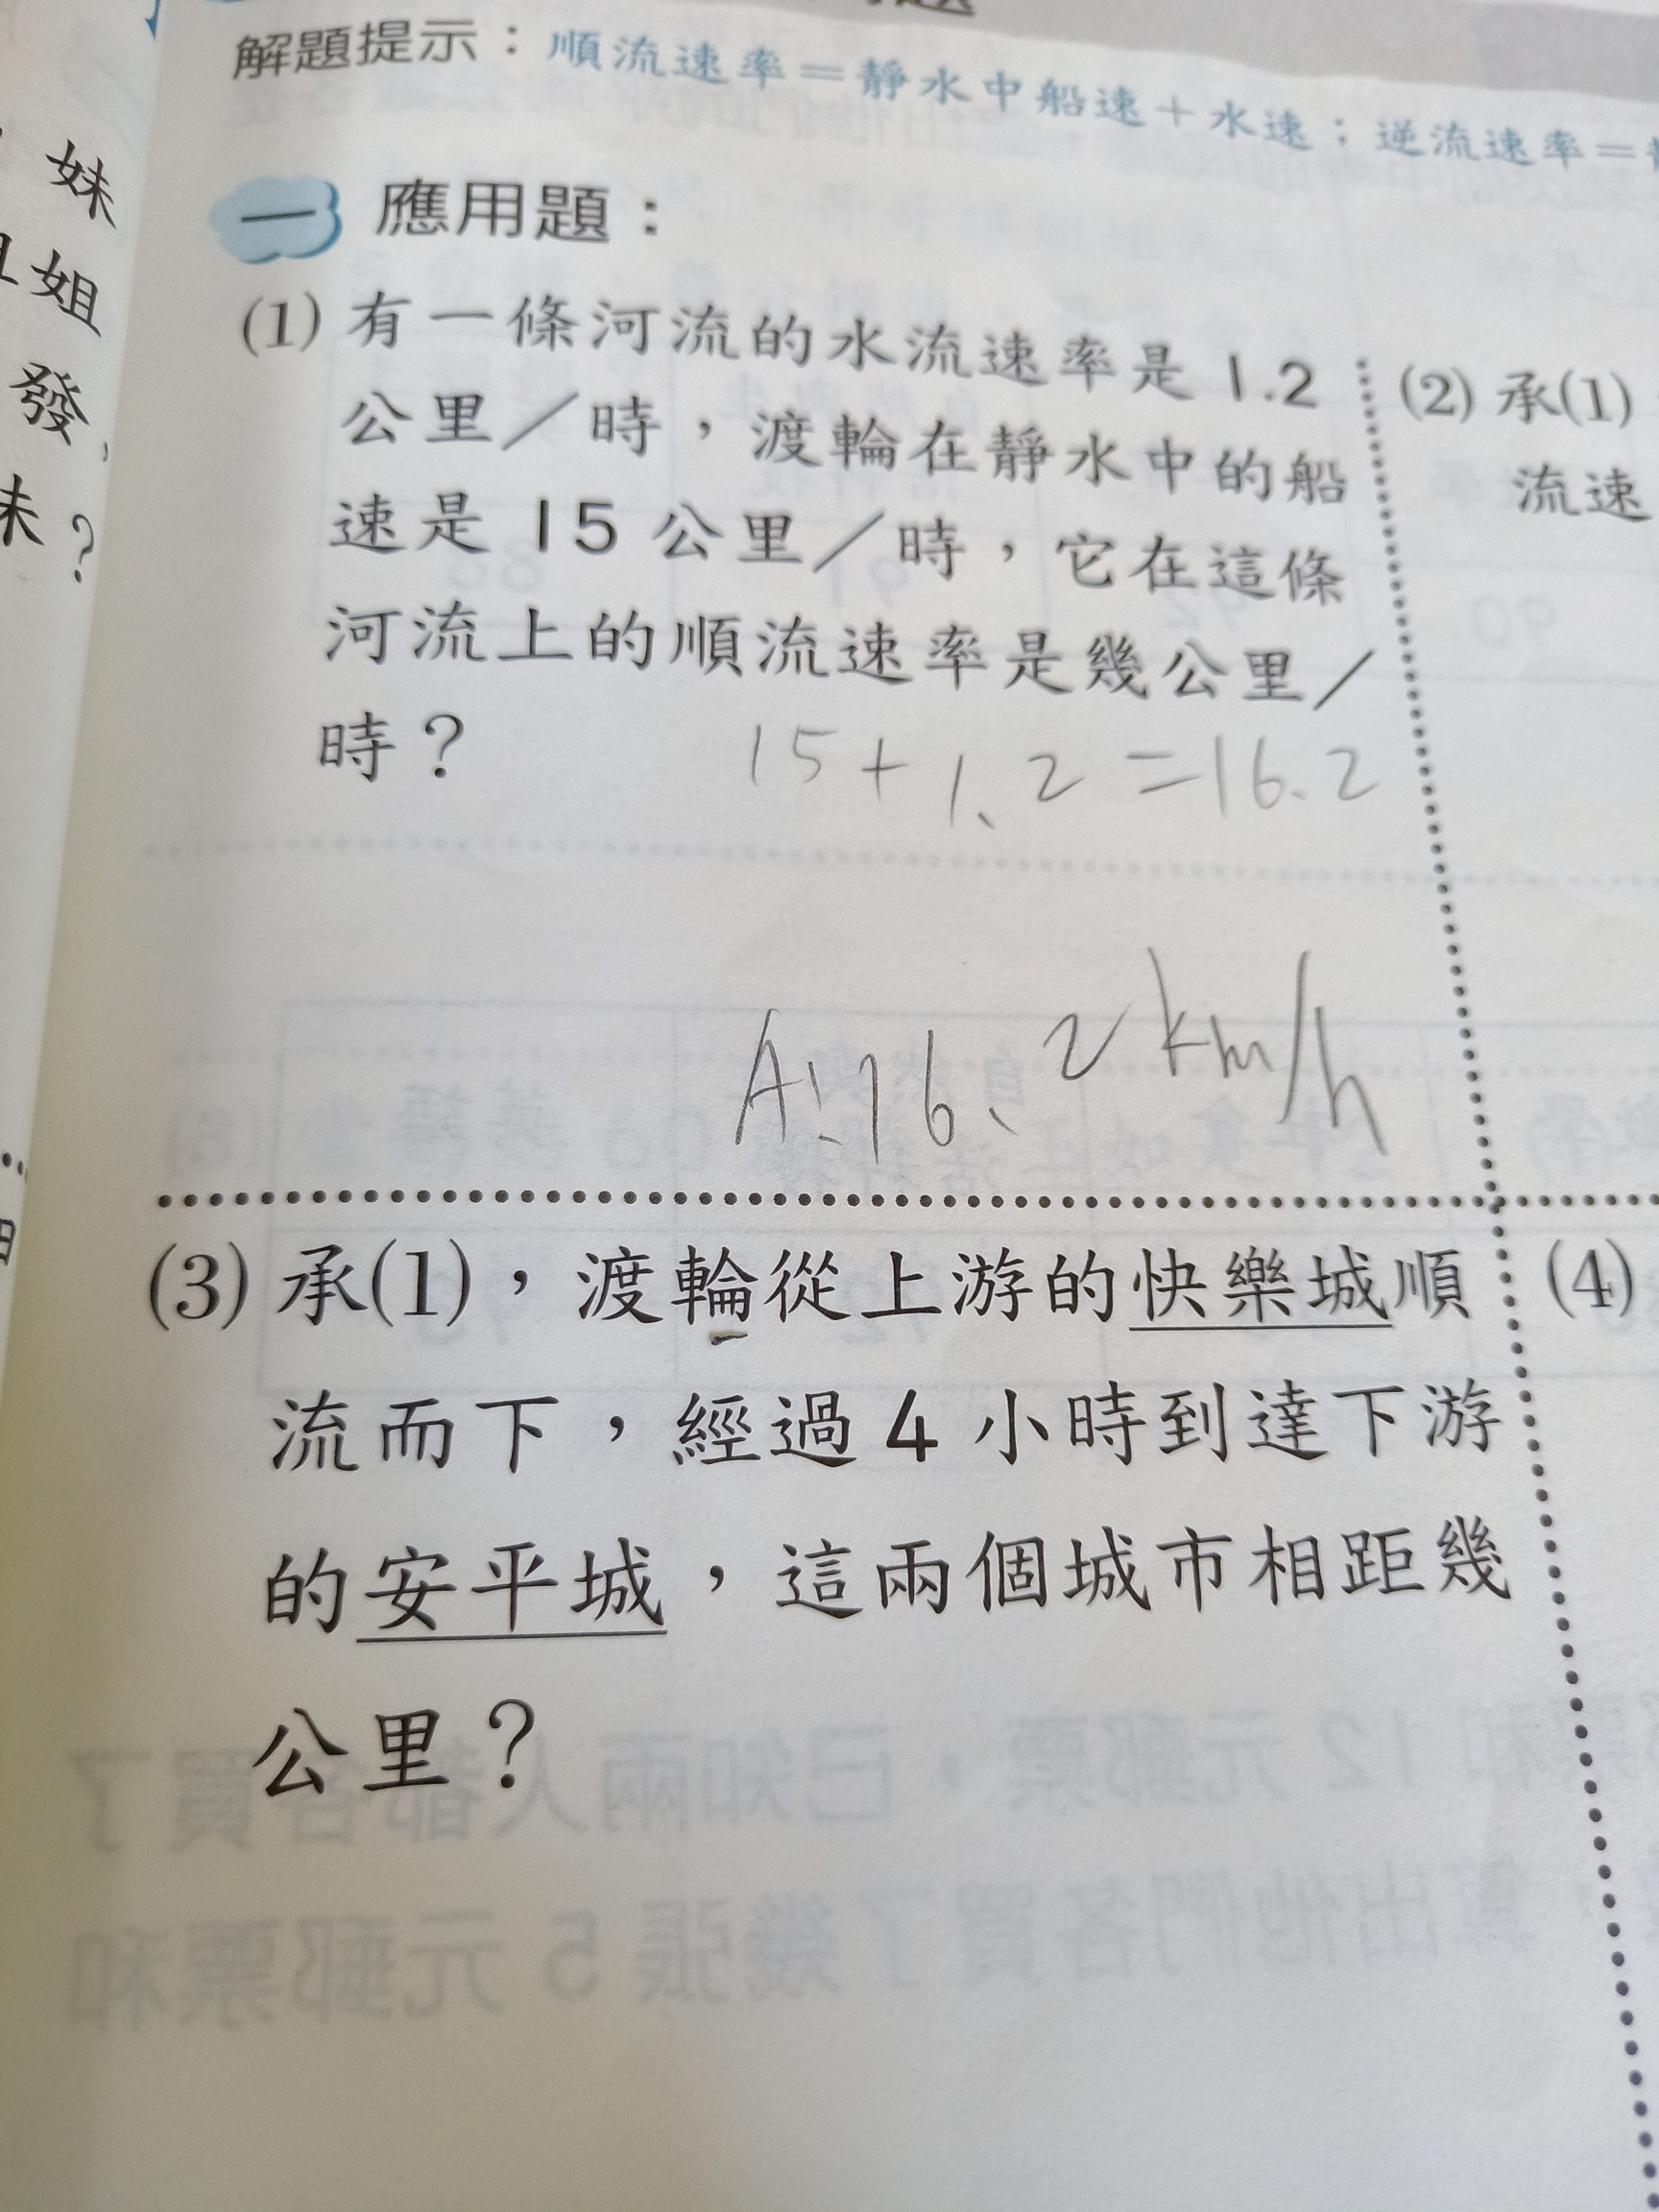 解題提示：順流速率＝靜水中船速＋水速；逆流速率＝
一 應用題：
(1) 有一條河流的水流速率是 1.2
公里／時，渡輪在靜水中的船
速是 15 公里／時，它在這條
河流上的順流速率是幾公里／
時？
15+1.2=16.2
A:16.2km/h
(2) 承(1)
流速
(3) 承(1)，渡輪從上游的快樂城順
流而下，經過 4 小時到達下游
的安平城，這兩個城市相距幾
公里？
(4)
妹
姐
發，
未？